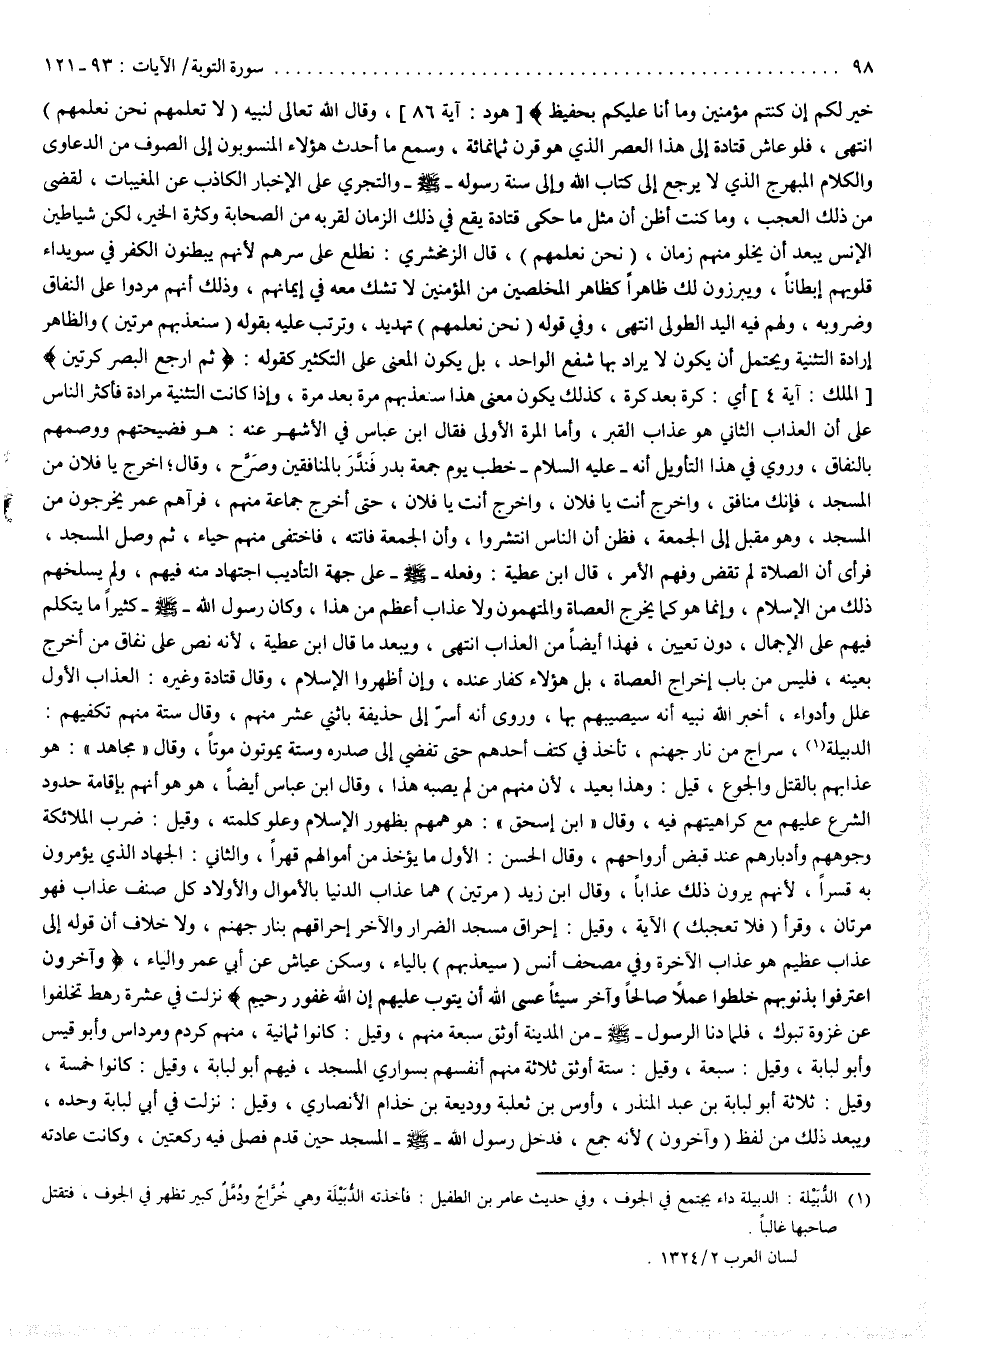 ٩٨ . . . . . . . . . . . . . . . . . . . . . . . . . . . . . . . . . . . . . . . . . . . . . . سورة التوبة/ الآيات : ٩٣ - ١٢١
خير لكم إن كنتم مؤمنين وما أنا عليكم بحفيظ ﴾ [ هود : آية ٨٦ ] ، وقال الله تعالى لنبيه ( لا تعلمهم نحن نعلمهم )
انتهى ، فلو عاش قتادة إلى هذا العصر الذي هو قرن ثمانمائة ، وسمع ما أحدث هؤلاء المنسوبون إلى الصوف من الدعاوى
والكلام المبهرج الذي لا يرجع إلى كتاب الله وإلى سنة رسوله - ﷺ - والتجري على الإخبار الكاذب عن المغيبات ، لقضى
من ذلك العجب ، وما كنت أظن أن مثل ما حكى قتادة يقع في ذلك الزمان لقربه من الصحابة وكثرة الخير، لكن شياطين
الإنس يبعد أن يخلو منهم زمان ، ( نحن نعلمهم ) ، قال الزمخشري : نطلع على سرهم لأنهم يبطنون الكفر في سويداء
قلوبهم إبطاناً ، ويبرزون لك ظاهراً كظاهر المخلصين من المؤمنين لا تشك معه في إيمانهم ، وذلك أنهم مردوا على النفاق
وضروبه ، ولهم فيه اليد الطولى انتهى ، وفي قوله ( نحن نعلمهم ) تهديد ، وترتب عليه بقوله ( سنعذبهم مرتين ) والظاهر
إرادة التثنية ويحتمل أن يكون لا يراد بها شفع الواحد ، بل يكون المعنى على التكثير كقوله : ﴿ ثم ارجع البصر كرتين ﴾
[ الملك : آية ٤ ] أي : كرة بعد كرة ، كذلك يكون معنى هذا سنعذبهم مرة بعد مرة ، وإذا كانت التثنية مرادة فأكثر الناس
على أن العذاب الثاني هو عذاب القبر ، وأما المرة الأولى فقال ابن عباس في الأشهر عنه : هو فضيحتهم ووصمهم
بالنفاق ، وروي في هذا التأويل أنه - عليه السلام - خطب يوم جمعة بدر فَندَّرَ بالمنافقين وصَرَّح ، وقال؛ اخرج يا فلان من
المسجد ، فإنك منافق ، واخرج أنت يا فلان ، واخرج أنت يا فلان ، حتى أخرج جماعة منهم ، فرآهم عمر يخرجون من
المسجد ، وهو مقبل إلى الجمعة ، فظن أن الناس انتشروا ، وأن الجمعة فاتته ، فاختفى منهم حياء ، ثم وصل المسجد ،
فرأى أن الصلاة لم تقض وفهم الأمر ، قال ابن عطية : وفعله - ﷺ - على جهة التأديب اجتهاد منه فيهم ، ولم يسلخهم
ذلك من الإسلام ، وإنما هو كما يخرج العصاة والمتهمون ولا عذاب أعظم من هذا ، وكان رسول الله - ﷺ - كثيراً ما يتكلم
فيهم على الإجمال ، دون تعيين ، فهذا أيضاً من العذاب انتهى ، ويبعد ما قال ابن عطية ، لأنه نص على نفاق من أخرج
بعينه ، فليس من باب إخراج العصاة ، بل هؤلاء كفار عنده ، وإن أظهروا الإسلام ، وقال قتادة وغيره : العذاب الأول
علل وأدواء ، أخبر الله نبيه أنه سيصيبهم بها ، وروى أنه أسرّ إلى حذيفة باثني عشر منهم ، وقال ستة منهم تكفيهم :
الدبيلة(١) ، سراج من نار جهنم ، تأخذ في كتف أحدهم حتى تفضي إلى صدره وستة يموتون موتاً ، وقال « مجاهد » : هو
عذابهم بالقتل والجوع ، قيل : وهذا بعيد ، لأن منهم من لم يصبه هذا ، وقال ابن عباس أيضاً ، هو هو أنهم بإقامة حدود
الشرع عليهم مع كراهيتهم فيه ، وقال « ابن إسحق » : هو همهم بظهور الإسلام وعلو كلمته ، وقيل : ضرب الملائكة
وجوههم وأدبارهم عند قبض أرواحهم ، وقال الحسن : الأول ما يؤخذ من أموالهم قهراً ، والثاني : الجهاد الذي يؤمرون
به قسراً ، لأنهم يرون ذلك عذاباً ، وقال ابن زيد ( مرتين ) هما عذاب الدنيا بالأموال والأولاد كل صنف عذاب فهو
مرتان ، وقرأ ( فلا تعجبك ) الآية ، وقيل : إحراق مسجد الضرار والآخر إحراقهم بنار جهنم ، ولا خلاف أن قوله إلى
عذاب عظيم هو عذاب الآخرة وفي مصحف أنس ( سيعذبهم ) بالياء ، وسكن عياش عن أبي عمر والياء ، ﴿ وآخرون
اعترفوا بذنوبهم خلطوا عملاً صالحاً وآخر سيئاً عسى الله أن يتوب عليهم إن الله غفور رحيم ﴾ نزلت في عشرة رهط تخلفوا
عن غزوة تبوك ، فلما دنا الرسول - ﷺ - من المدينة أوثق سبعة منهم ، وقيل : كانوا ثمانية ، منهم كردم ومرداس وأبو قيس
وأبو لبابة ، وقيل : سبعة ، وقيل : ستة أوثق ثلاثة منهم أنفسهم بسواري المسجد ، فيهم أبو لبابة ، وقيل : كانوا خمسة ،
وقيل : ثلاثة أبو لبابة بن عبد المنذر ، وأوس بن ثعلبة ووديعة بن خذام الأنصاري ، وقيل : نزلت في أبي لبابة وحده ،
ويبعد ذلك من لفظ ( وآخرون ) لأنه جمع ، فدخل رسول الله - ﷺ - المسجد حين قدم فصلى فيه ركعتين ، وكانت عادته
(١) الدُّبَيْلة : الدبيلة داء يجتمع في الجوف ، وفي حديث عامر بن الطفيل : فأخذته الدُّبَيْلَة وهي خُرَّاجٌ ودُمَّلٌ كبير تظهر في الجوف ، فتقتل
صاحبها غالباً .
لسان العرب ٢/ ١٣٢٤ .